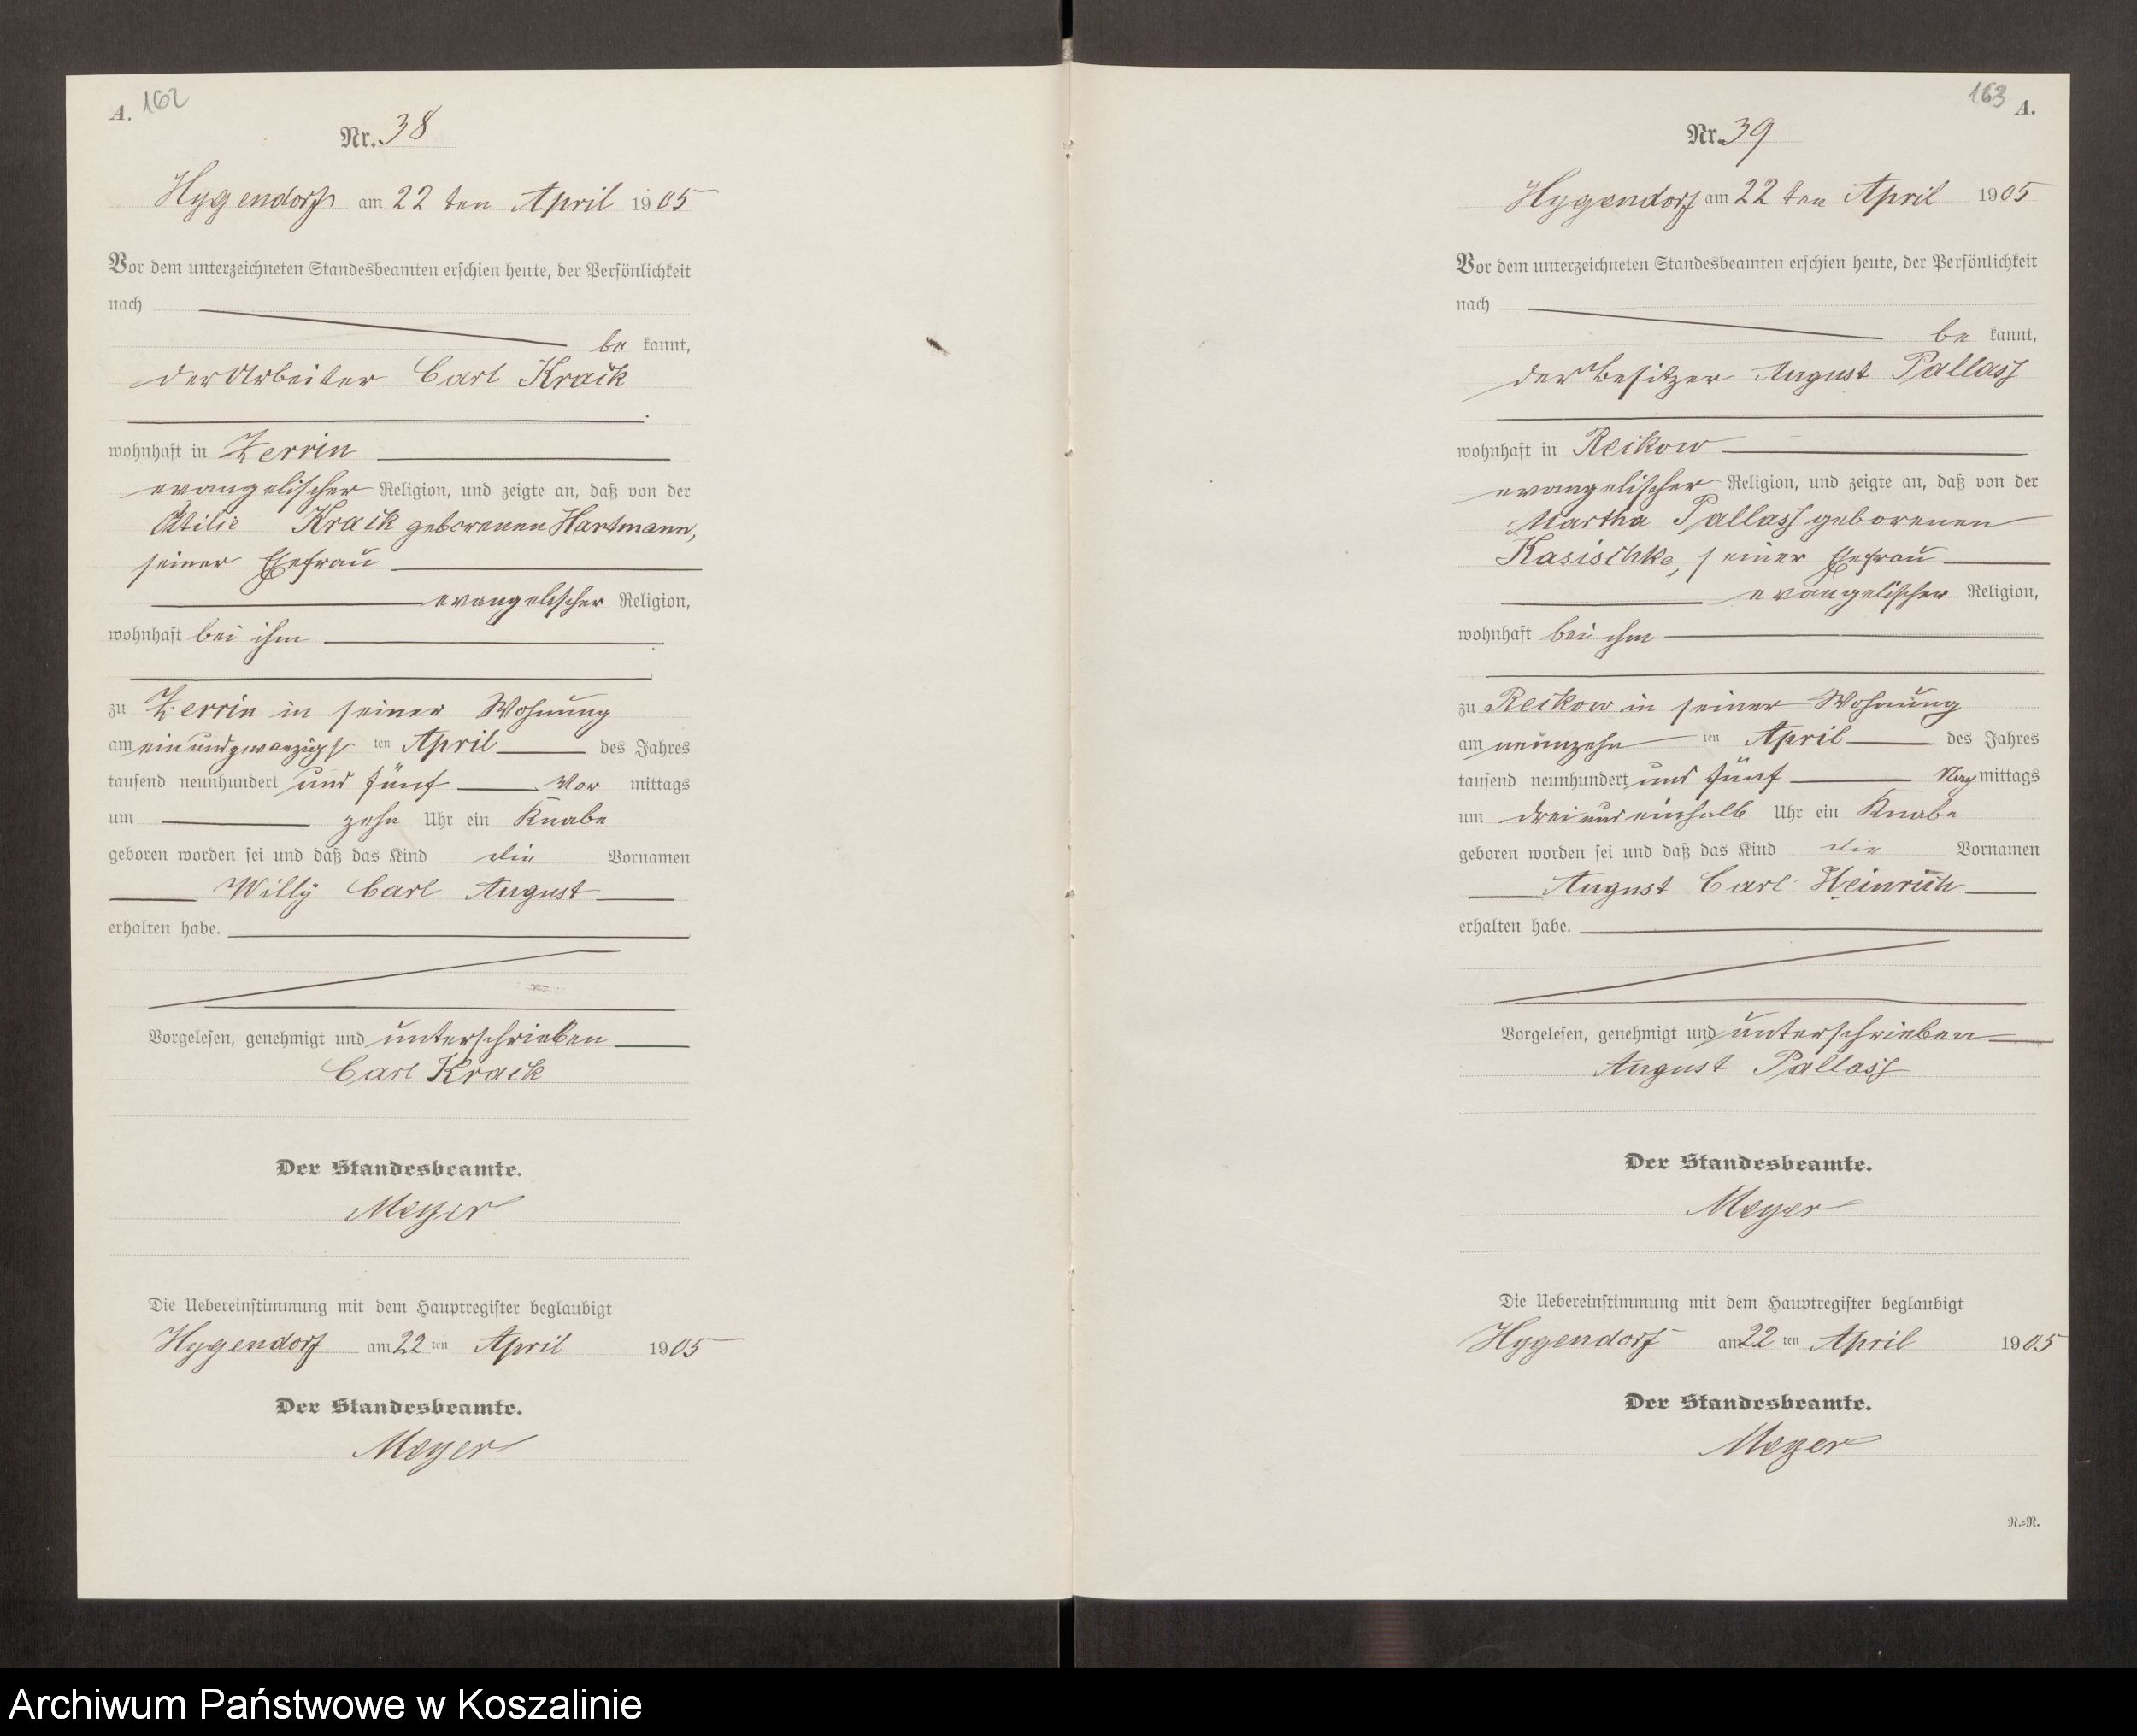 A. 162
Nr. 38
Hygendorf am 22 ten April 1905
Vor dem unterzeichneten Standesbeamten erschien heute, der Persönlichkeit
nach
be kannt,
der Arbeiter Carl Kraik
wohnhaft in Zerrin
evangelischer Religion, und zeigte an, daß von der
Kraik geborenen Hartmann,
seiner Ehefrau
evangelischer Religion,
wohnhaft bei ihm
zu Zerrin in seiner Wohnung
am einundzwanzigs ten April des Jahres
tausend neunhundert und fünf Vor mittags
um zehn Uhr ein Knabe
geboren worden sei und daß das Kind die Vornamen
Willy Carl August
erhalten habe.
Vorgelesen, genehmigt und unterschrieben
Carl Kraik
Der Standesbeamte.
Meyer
Die Uebereinstimmung mit dem Hauptregister beglaubigt
Hygendorf am 22 ten April 1905
Der Standesbeamte.
Meyer
163 A.
Nr. 39
Hygendorf am 22 ten April 1905
Vor dem unterzeichneten Standesbeamten erschien heute, der Persönlichkeit
nach
be kannt,
der Besitzer August Pallass
wohnhaft in Reikow
evangelischer Religion, und zeigte an, daß von der
Martha Pallass geborenen
Kasischke, seiner Ehefrau
evangelischer Religion,
wohnhaft bei ihm
zu Reikow in seiner Wohnung
am neunzehn ten April des Jahres
tausend neunhundert und fünf Nach mittags
um drei und einhalb Uhr ein Knabe
geboren worden sei und daß das Kind die Vornamen
August Carl Heinrich
erhalten habe.
Vorgelesen, genehmigt und unterschrieben
August Pallass
Der Standesbeamte.
Meyer
Die Uebereinstimmung mit dem Hauptregister beglaubigt
Hygendorf am 22 ten April 1905
Der Standesbeamte.
Meyer
R.=R.
Archiwum Państwowe w Koszalinie